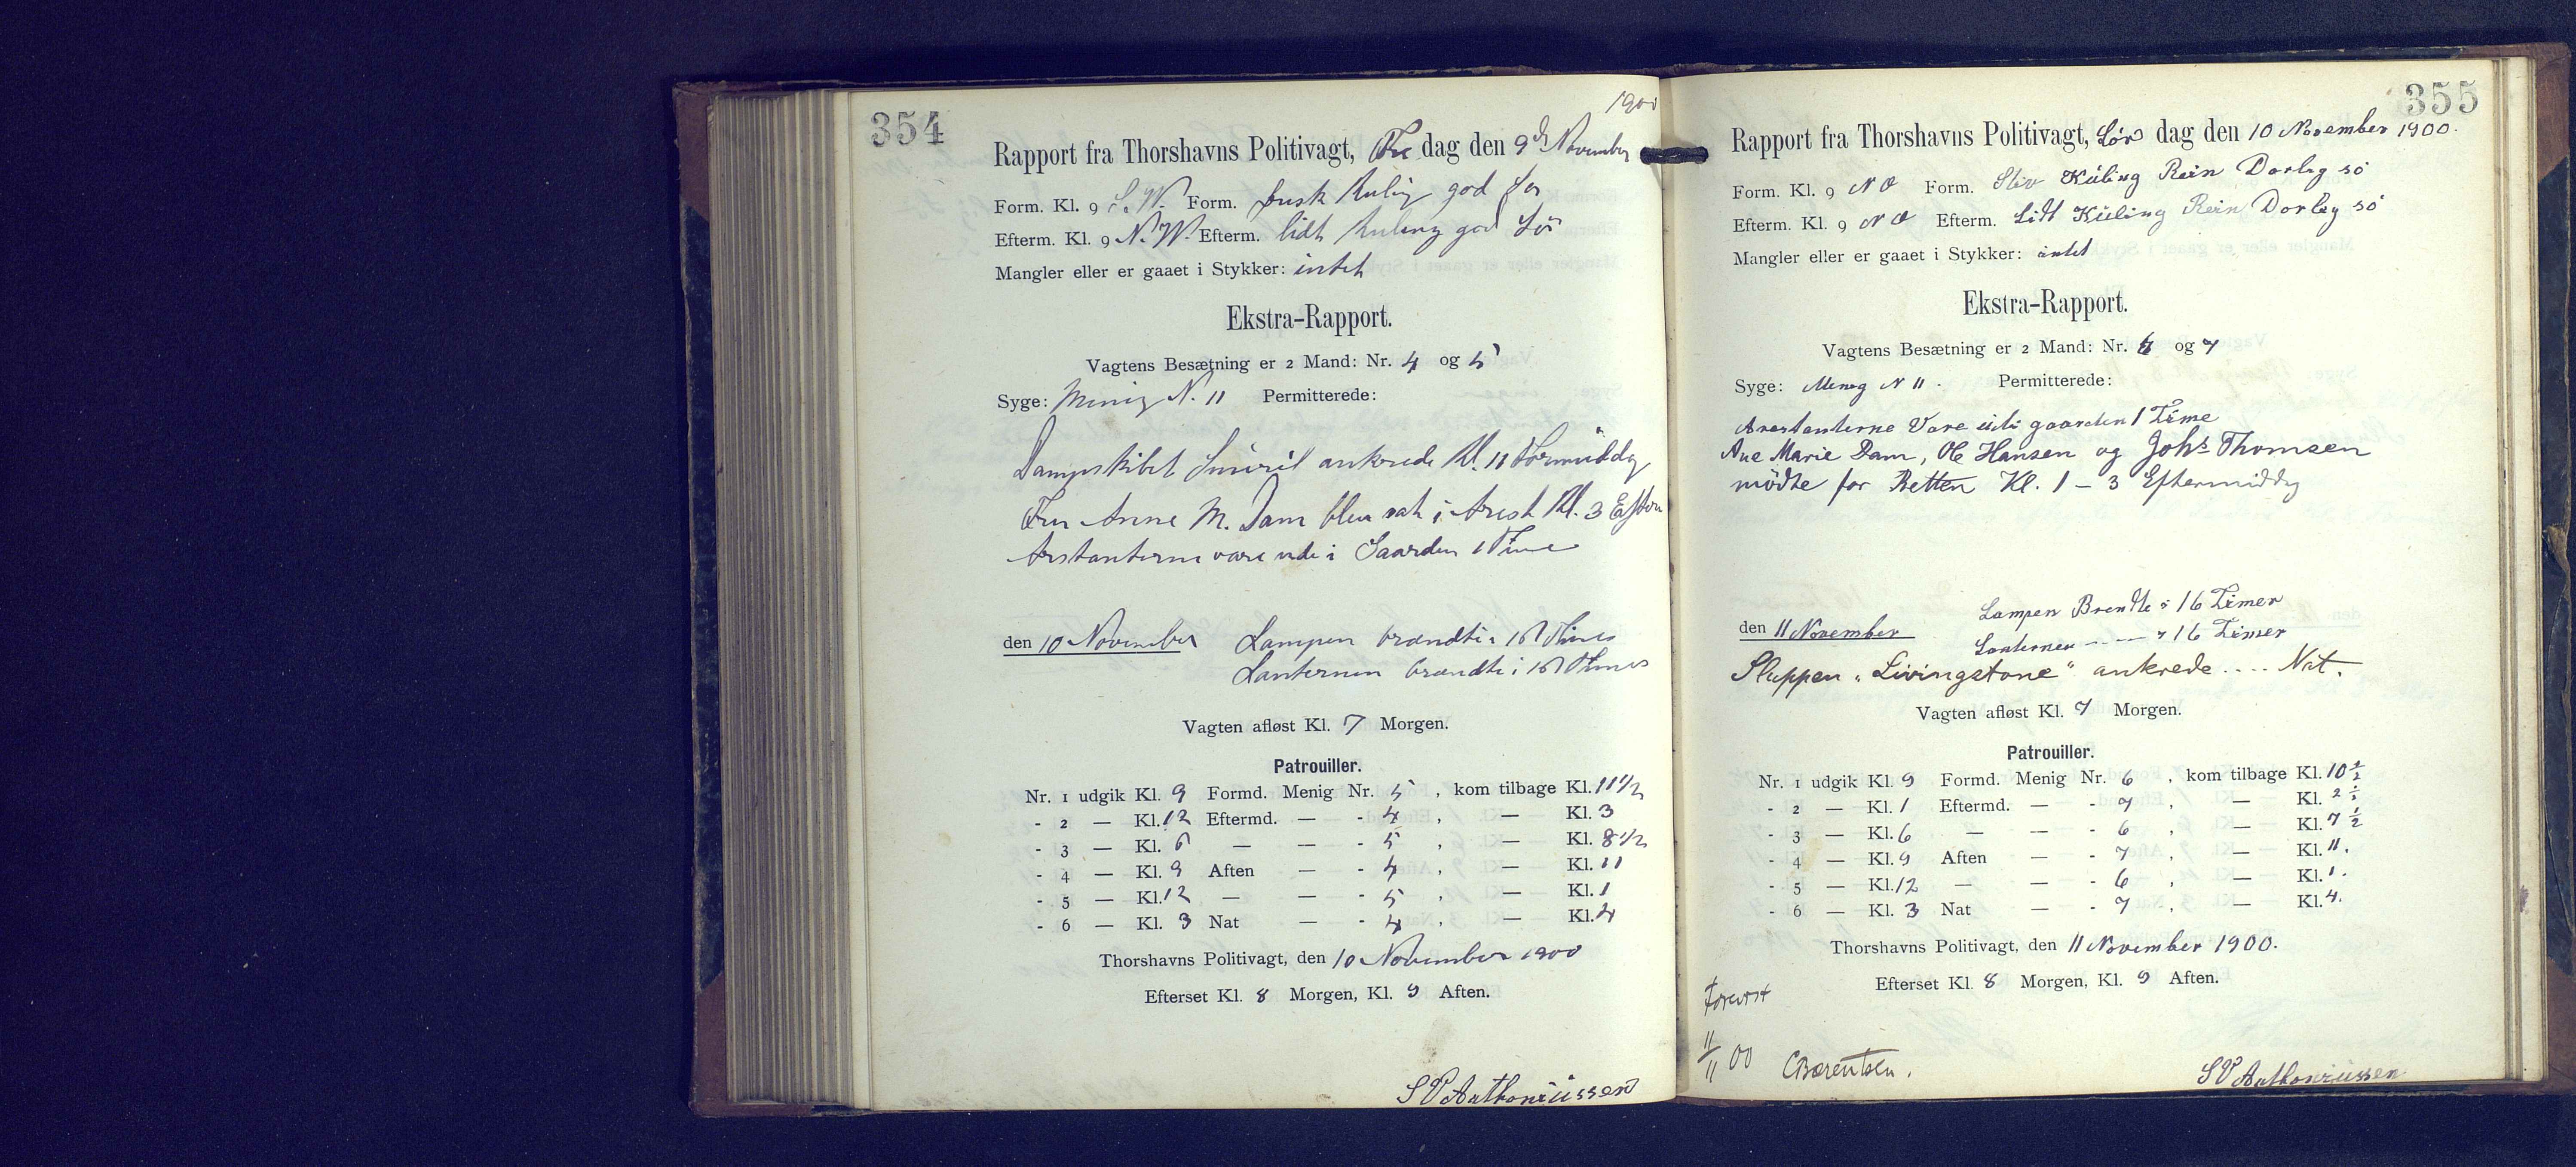 354
1900
Rapport fra Thorshavns Politivagt, Fre dag den 9de November
Form. Kl. 9 S.W. Form. frisk Kuling god
Efterm. Kl. 9 N.W. Efterm. lidt Kuling god
Mangler eller er gaaet i Stykker: intet
Ekstra-Rapport.
Vagtens Besætning er 2 Mand: Nr. 4 og 5
Syge: Menig N. 11 Permitterede:
Dampskibet Smiril ankrede Kl. 11 Formiddag
Fru Anne M. Dam blev sat i Arest Kl. 3 Efterm
Arstanterne vare ude i Gaarden 1 Time
den 10 November Lampen brændte i 16 Times
Lanternen brændte i 16 Times
Vagten afløst Kl. 7 Morgen.
Patrouiller.
Nr. 1 udgik Kl. 9 Formd. Menig Nr. 5 , kom tilbage Kl. 11 1/2
- 2 — Kl. 12 Eftermd. — - 4 , — Kl. 3
- 3 — Kl. 6 — — - 5 , — Kl. 8 1/2
- 4 — Kl. 9 Aften — - 4 , — Kl. 11
- 5 — Kl. 12 — — - 5 , — Kl. 1
- 6 — Kl. 3 Nat — - 4 , — Kl. 4
Thorshavns Politivagt, den 10 November 1900
Efterset Kl. 8 Morgen, Kl. 9 Aften.
S P Anthoniussen
355
Rapport fra Thorshavns Politivagt, Lør dag den 10 November 1900.
Form. Kl. 9 N O Form. Stiv Küling Rein Dorlig sö
Efterm. Kl. 9 N O Efterm. Lidt Küling Rein Dorlig sö
Mangler eller er gaaet i Stykker: intet
Ekstra-Rapport.
Vagtens Besætning er 2 Mand: Nr. 6 og 7
Syge: Meneg N 11. Permitterede:
Arestanterne Vare üdi gaarden 1 Time
Ane Marie Dam, Ole Hansen og Johs Thomsen
mödte for Retten Kl. 1 - 3 Eftermiddg
den 11 November Lampen Brendte i 16 Timer
Lanternen — — " 16 Timer
Sluppen „Livingstone" ankrede .... Nat.
Vagten afløst Kl. 7 Morgen.
Patrouiller.
Nr. 1 udgik Kl. 9 Formd. Menig Nr. 6 , kom tilbage Kl. 10 1/2
- 2 — Kl. 1 Eftermd. — - 7 , — Kl. 2 1/2
- 3 — Kl. 6 — — - 6 , — Kl. 7 1/2
- 4 — Kl. 9 Aften — - 7 , — Kl. 11.
- 5 — Kl. 12 — — - 6 , — Kl. 1.
- 6 — Kl. 3 Nat — - 7 , — Kl. 4.
Thorshavns Politivagt, den 11 November 1900.
Efterset Kl. 8 Morgen, Kl. 9 Aften.
Forevist
11/11 00 CBærentsen.
S P Anthoniussen